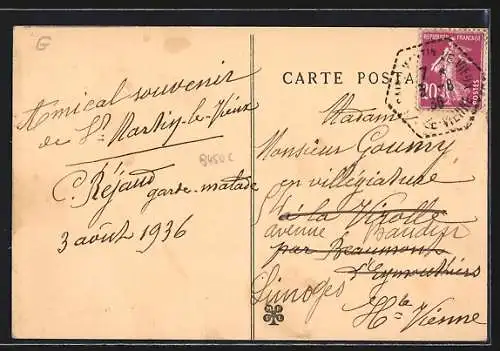 G
Amical souvenir
de St Martin-le-Vieux
B450C
C. Réjaud
garde-malade
3 août 1936
CARTE POSTA
REPUBLIQUE FRANÇAISE
20c
POSTES
7
8
36
TE-VIENNE
Madame
Monsieur Goumy
en villégiature
à la Virolle
avenue Baudin
par Beaumont
d'Eymoutiers
Limoges
Hte Vienne